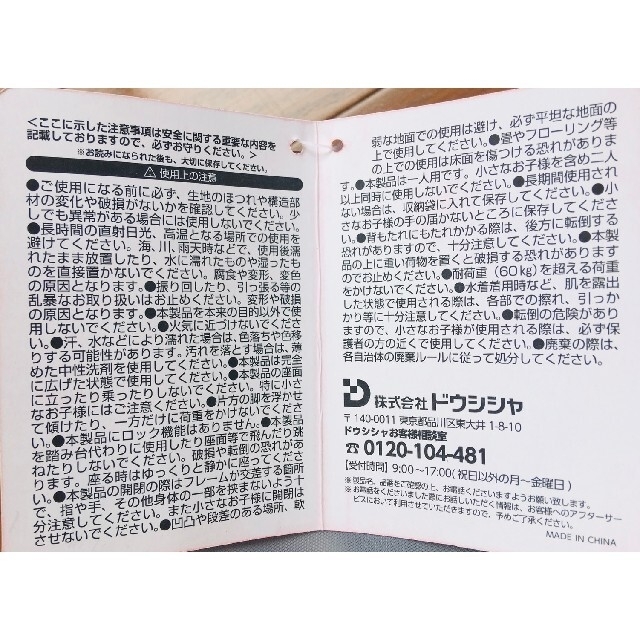 ＜ここに示した注意事項は安全に関する重要な内容を
記載しておりますので、必ずお守りください。＞
※お読みになられた後も、大切に保存してください。
⚠ 使用上の注意
●ご使用になる前に必ず、生地のほつれや構造部
材の変化や破損がないかを確認してください。少
しでも異常がある場合には使用しないでください。
●長時間の直射日光、高温となる場所での使用を
避けてください。海、川、雨天時などで、使用後濡
れたまま放置したり、水に濡れたものや湿ったも
のを直接置かないでください。腐食や変形、変色
の原因となります。●振り回したり、引っ張る等の
乱暴なお取り扱いはお止めください。変形や破損
の原因となります。●本製品を本来の目的以外で使
用しないでください。●火気に近づけないでください。
●汗、水などにより濡れた場合は、色落ちや色移
りする可能性があります。汚れを落とす場合は、薄
めた中性洗剤を使用してください。●本製品は完全
に広げた状態で使用してください。●本製品の座面
に立ったり乗ったりしないでください。特に小さ
なお子様にはご注意ください。●片方の脚を浮かせ
て傾けたり、一方だけに荷重をかけないでください。
●本製品にロック機能はありません。●本製品
を踏み台代わりに使用したり座面等で飛んだり跳
ねたりしないでください。破損や転倒の恐れがあ
ります。座る時はゆっくりと静かに座ってください。
●本製品の開閉の際はフレームが交差する箇所
で、指や手、その他身体の一部を挟まないよう十
分注意してください。また小さなお子様に開閉は
させないでください。●凹凸や段差のある場所、軟
弱な地面での使用は避け、必ず平坦な地面の
上で使用してください。●畳やフローリング等
の上での使用は床面を傷つける恐れがありま
す。●本製品は一人用です。小さなお子様を含め二人
以上同時に使用しないでください。●長期間使用され
ない場合は、収納袋に入れて保存してください。●小
さなお子様の手の届かないところに保存してくださ
い。●背もたれにもたれかかる際は、後方に転倒する
恐れがありますので、十分注意してください。●本製
品の上に重い荷物を置くと破損する恐れがありますの
でお止めください。●耐荷重（60kg）を超える荷重
をかけないでください。●水着着用時など、肌を露出
した状態で使用される際は、各部での擦れ、引っか
かり等に十分注意してください。●転倒の危険があり
ますので、小さなお子様が使用される際は、必ず保
護者の方の近くで使用してください。●廃棄の際は、
各自治体の廃棄ルールに従って処分してください。
株式会社 ドウシシャ
〒140-0011 東京都品川区東大井 1-8-10
ドウシシャお客様相談室
0120-104-481
【受付時間】9:00〜17:00（祝日以外の月〜金曜日）
※製品名、品番をご確認の上、お電話くださいますようお願い致します。
※お電話をくださいました際にお話しいただく情報は、お客様へのアフターサー
ビスにおいて利用させていただきますので、予めご了承ください。
MADE IN CHINA